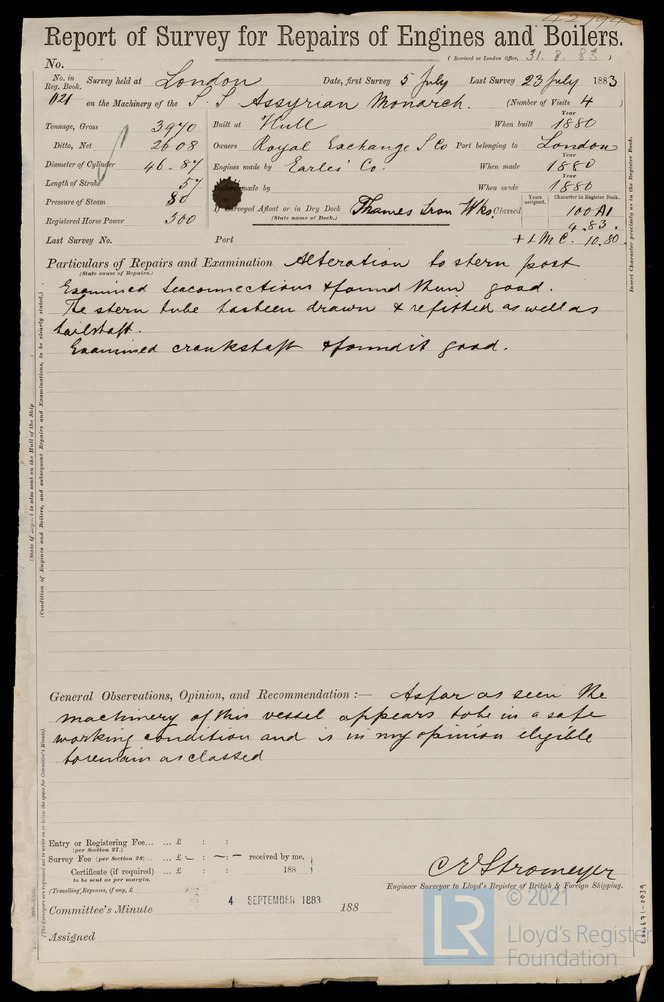 Report of Survey for Repairs of Engines and Boilers.
(Received at London Office, 31. 8. 83.)
No.
No. in Reg. Book. Survey held at London Date, first Survey 5 July Last Survey 23 July 1883
1121 on the Machinery of the S. S Assyrian Monarch. (Number of Visits 4
Tonnage, Gross 3970 Built at Hull When built Year 1880
Ditto, Net 2608 Owners Royal Exchange S Co Port belonging to London
Diameter of Cylinder 46-87 Engines made by Earles' Co. When made Year 1880
Length of Stroke 57 made by When made Year 1880
Pressure of Steam 80 If Surveyed Afloat or in Dry Dock Thames Iron Wks. Classed Years assigned. Character in Register Book. 100 A1
(State name of Dock.)
4.83.
Registered Horse Power 500
Last Survey No. Port + L M C. 10,80.
Particulars of Repairs and Examination Alteration to stern post
(State cause of Repairs.)
Examined seaconnections & found them good.
The stern tube has been drawn & refitted as well as
tailshaft.
Examined crankshaft & found it good.
(State if report is also sent on the Hull of the Ship
(Condition of Engines and Boilers, and subsequent Repairs and Examinations, to be clearly stated.)
Insert Character precisely as in the Register Book.
General Observations, Opinion, and Recommendation :— As far as seen the
machinery of this vessel appears to be in a safe
working condition and is in my opinion eligible
to remain as classed
Entry or Registering Fee... ... £ : :
(per Section 27.)
Survey Fee (per Section 28) ... ... £ – : – : – received by me,
Certificate (if required) ... £ : : 188
to be sent as per margin.
(Travelling Expenses, if any, £
C E Stromeyer
Engineer Surveyor to Lloyd's Register of British & Foreign Shipping.
Committee's Minute 4 SEPTEMBER 1883 188
Assigned
© 2021
LR
Lloyd's Register
Foundation